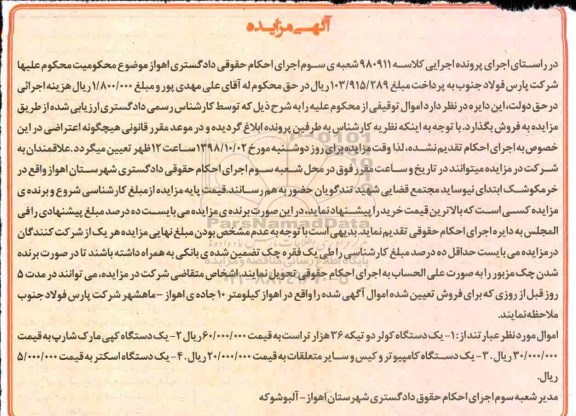 آگهی مزایده
در راستای اجرای پرونده اجرایی کلاسه ۹۸۰۹۱۱ شعبه ی سوم اجرای احکام حقوقی دادگستری اهواز موضوع محکومیت محکوم علیها
شرکت پارس فولاد جنوب به پرداخت مبلغ ۱۰۳/۹۱۵/۲۸۹ ریال در حق محکوم له آقای علی مهدی پور و مبلغ ۱/۸۰۰/۰۰۰ ریال هزینه اجرائی
در حق دولت، این دایره در نظر دارد اموال توقیفی از محکوم علیه را به شرح ذیل که توسط کارشناس رسمی دادگستری ارزیابی شده از طریق
مزایده به فروش بگذارد. با توجه به اینکه نظریه کارشناس به طرفین پرونده ابلاغ گردیده و در موعد مقرر قانونی هیچگونه اعتراضی در این
خصوص به اجرای احکام تقدیم نشده، لذا وقت مزایده برای روز دوشنبه مورخ ۱۳۹۸/۱۰/۰۲ ساعت ۱۲ ظهر تعیین میگردد. علاقمندان به
شرکت در مزایده میتوانند در تاریخ و ساعت مقرر فوق در محل شعبه سوم اجرای احکام حقوقی دادگستری شهرستان اهواز واقع در
خرمکوشک ابتدای نیوساید مجتمع قضایی شهید تندگویان حضور به هم رسانند. قیمت پایه مزایده از مبلغ کارشناسی شروع و برنده ی
مزایده کسی است که بالاترین قیمت خرید را پیشنهاد نماید، در این صورت برنده ی مزایده می بایست ده درصد مبلغ پیشنهادی را فی
المجلس به دایره اجرای احکام حقوقی تقدیم نماید. بدیهی است با توجه به عدم مشخص بودن مبلغ نهایی مزایده هر یک از شرکت کنندگان
در مزایده می بایست حداقل ده درصد مبلغ کارشناسی را طی یک فقره چک تضمین شده ی بانکی به همراه داشته باشند تا در صورت برنده
شدن چک مزبور را به صورت علی الحساب به اجرای احکام حقوقی تحویل نمایند. اشخاص متقاضی شرکت در مزایده، می توانند در مدت ۵
روز قبل از روزی که برای فروش تعیین شده اموال آگهی شده را واقع در اهواز کیلومتر ۱۰ جاده ی اهواز - ماهشهر شرکت پارس فولاد جنوب
ملاحظه نمایند.
اموال مورد نظر عبارتند از: ۱- یک دستگاه کولر دو تیکه ۳۶ هزار تراست به قیمت ۶۰/۰۰۰/۰۰۰ ریال ۲- یک دستگاه کپی مارک شارپ به قیمت
۳۰/۰۰۰/۰۰۰ ریال. ۳- یک دستگاه کامپیوتر و کیس و سایر متعلقات به قیمت ۲۰/۰۰۰/۰۰۰ ریال. ۴- یک دستگاه اسکنر به قیمت ۵/۰۰۰/۰۰۰
ریال.
مدیر شعبه سوم اجرای احکام حقوق دادگستری شهرستان اهواز - آلبوشوکه
ParsNamadData